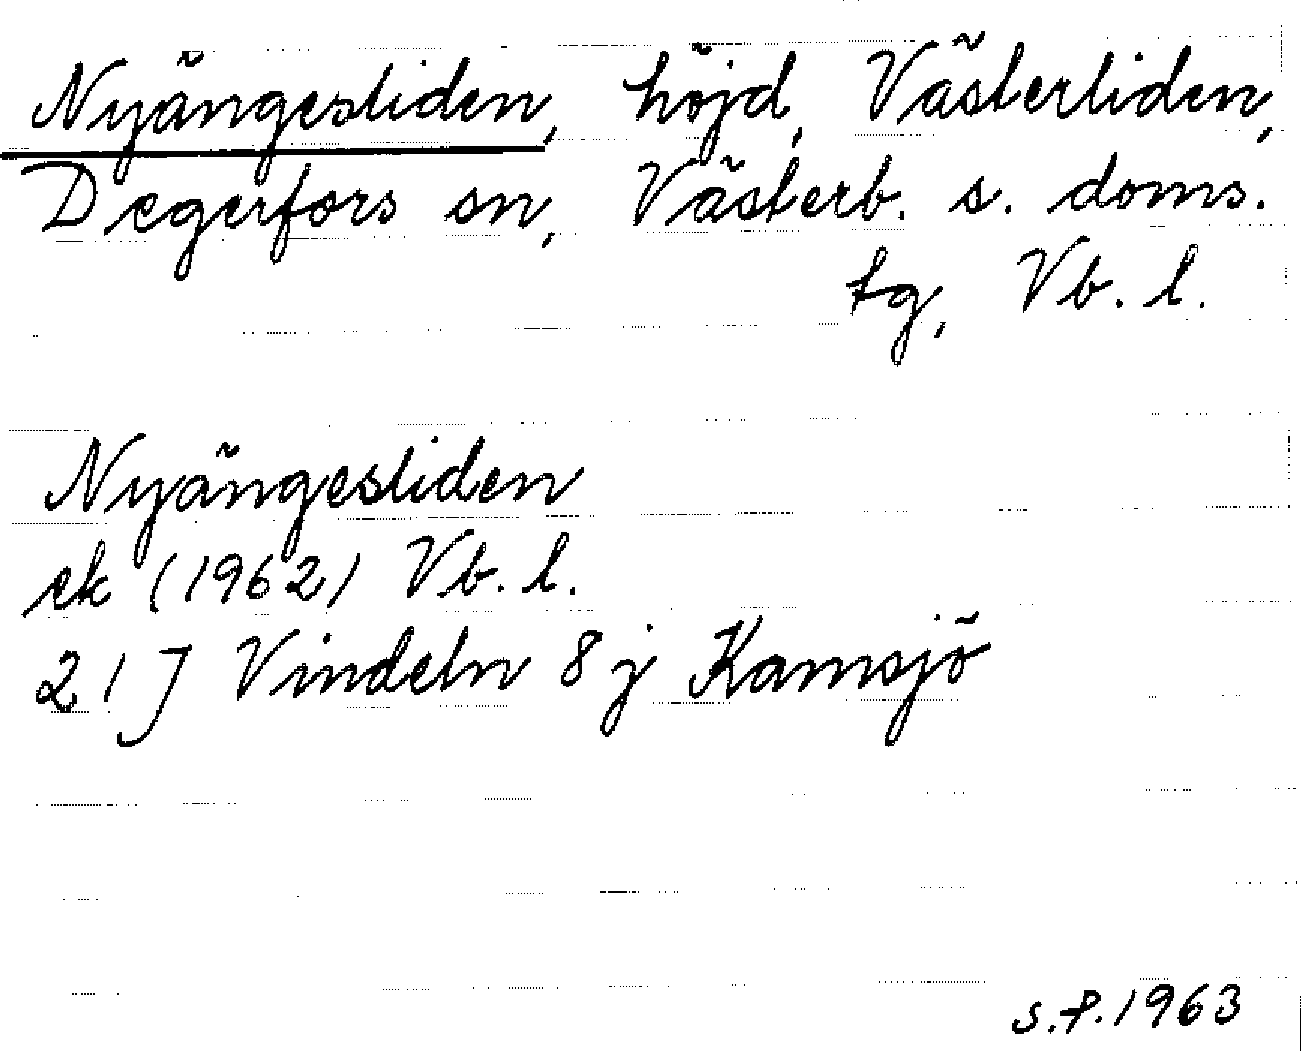 Nyängesliden, höjd, Västerliden,
Degerfors sn, Västerb. s. doms.
tg, Vb. l.
Nyängesliden
ek (1962) Vb. l.
21 J Vindeln 8 j Kamsjö
S.P. 1963